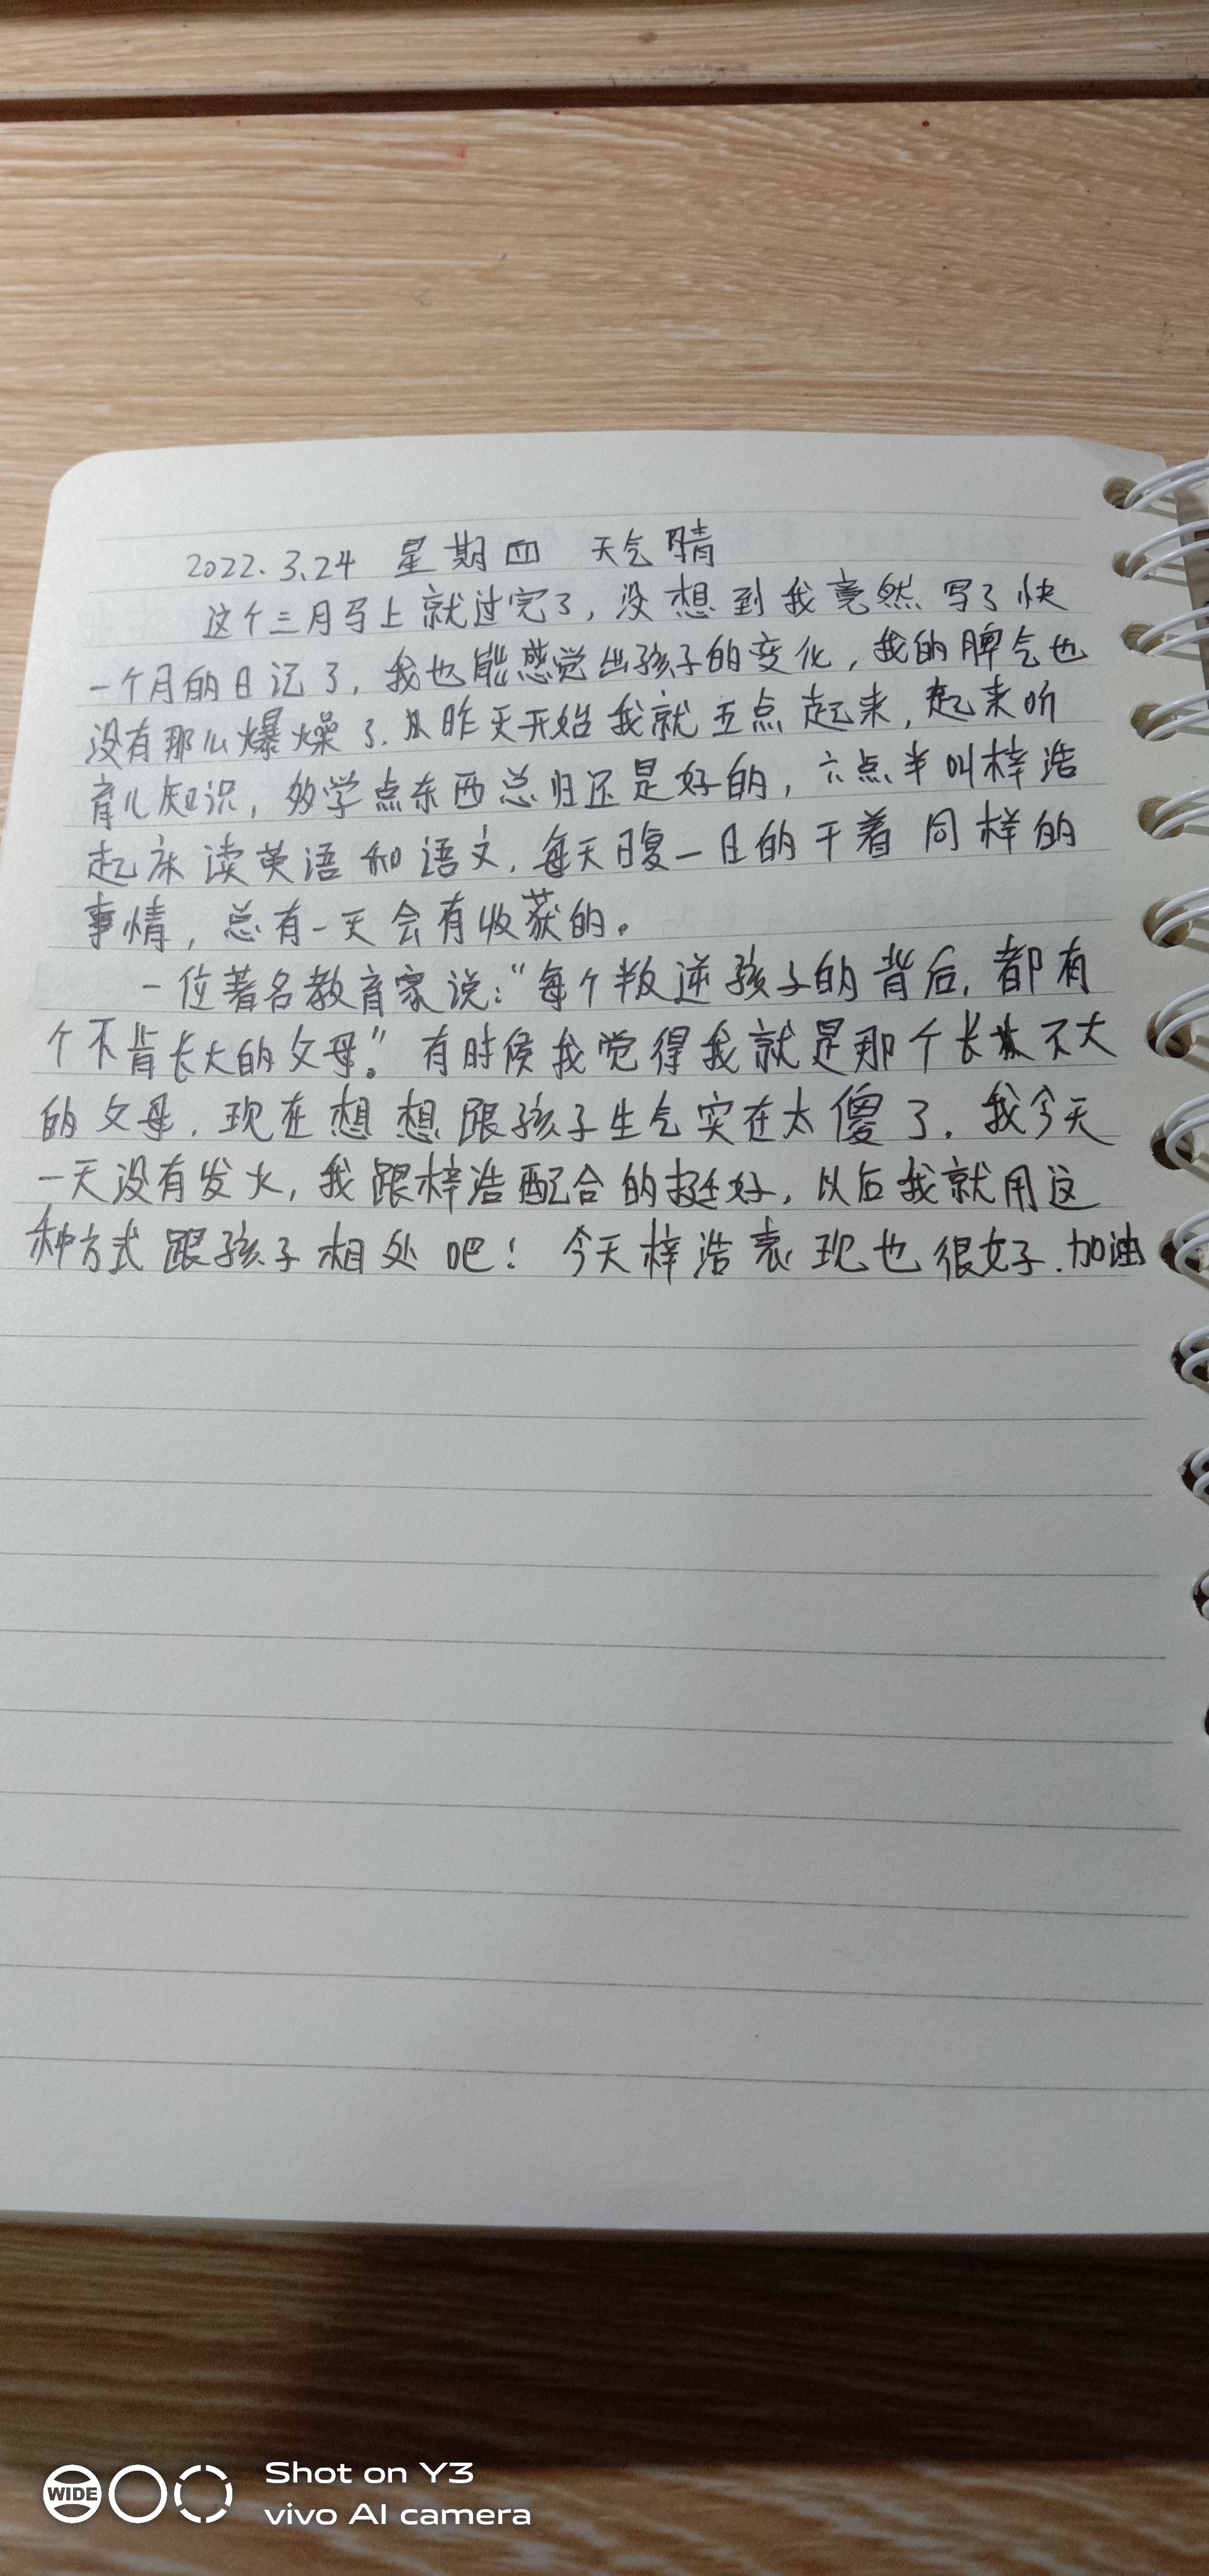 2022.3.24 星期四 天气晴
这个三月马上就过完了,没想到我竟然写了快
一个月的日记了,我也能感觉出孩子的变化,我的脾气也
没有那么爆燥了.从昨天开始我就五点起来,起来听
育儿知识,多学点东西总归还是好的,六点半叫梓浩
起床读英语和语文,每天日复一日的干着同样的
事情,总有一天会有收获的。
一位著名教育家说:“每个叛逆孩子的背后,都有
个不肯长大的父母。”有时候我觉得我就是那个长不大
的父母.现在想想跟孩子生气实在太傻了.我今天
一天没有发火,我跟梓浩配合的挺好,以后我就用这
种方式跟孩子相处吧!今天梓浩表现也很好.加油
WIDE
Shot on Y3
vivo AI camera